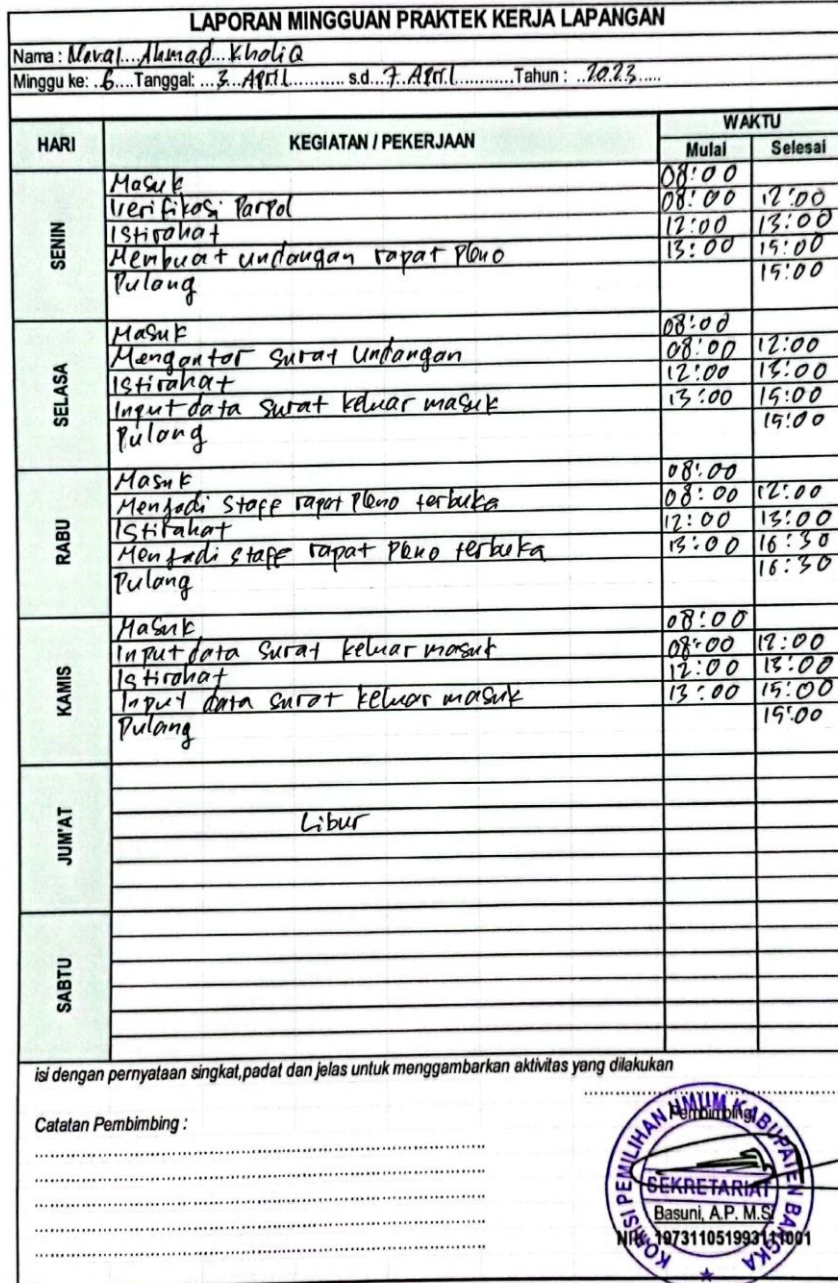 LAPORAN MINGGUAN PRAKTEK KERJA LAPANGAN
Nama : Naval Ahmad Kholiq
Minggu ke: ..6....Tanggal: ...3...April............ s.d...7..April............Tahun : ..2023.....
HARI KEGIATAN / PEKERJAAN WAKTU
Mulai Selesai
SENIN
Masuk 08:00
Verifikasi Parpol 08:00 12:00
Istirahat 12:00 13:00
Membuat undangan rapat Pleno 13:00 15:00
Pulang 15:00
SELASA
Masuk 08:00
Mengantar Surat Undangan 08:00 12:00
Istirahat 12:00 13:00
Input data Surat keluar masuk 13:00 15:00
Pulang 15:00
RABU
Masuk 08:00
Menjadi Staff rapat Pleno terbuka 08:00 12:00
Istirahat 12:00 13:00
Menjadi staff rapat Pleno terbuka 13:00 16:30
Pulang 16:30
KAMIS
Masuk 08:00
Input data Surat keluar masuk 08:00 12:00
Istirahat 12:00 13:00
Input data Surat keluar masuk 13:00 15:00
Pulang 15:00
JUM'AT
Libur
SABTU
isi dengan pernyataan singkat,padat dan jelas untuk menggambarkan aktivitas yang dilakukan
Pembimbing
Catatan Pembimbing :
KOMISI PEMILIHAN UMUM KABUPATEN BANGKA
SEKRETARIAT
Basuni, A.P. M.S
197311051993111001